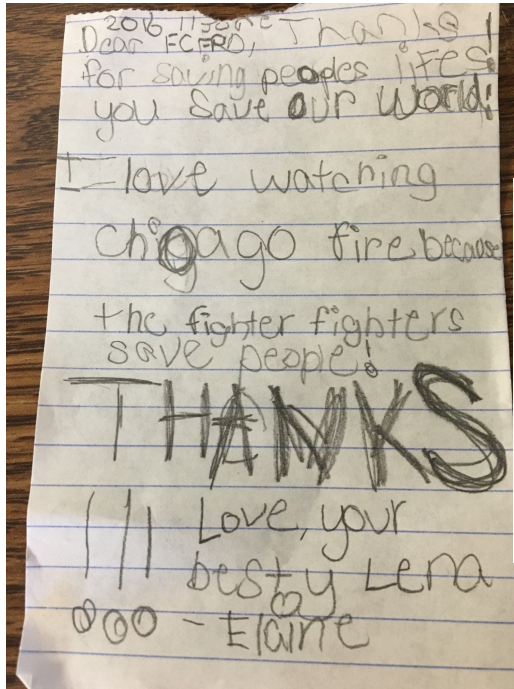 2016 11 June
Dear FCFRD, Thanks!
for saving peoples lifes!
you save our world!
I love watching
chigago fire because
the fighter fighters
save people!
THANKS
!!! Love, your
besty Lena
- Elaine